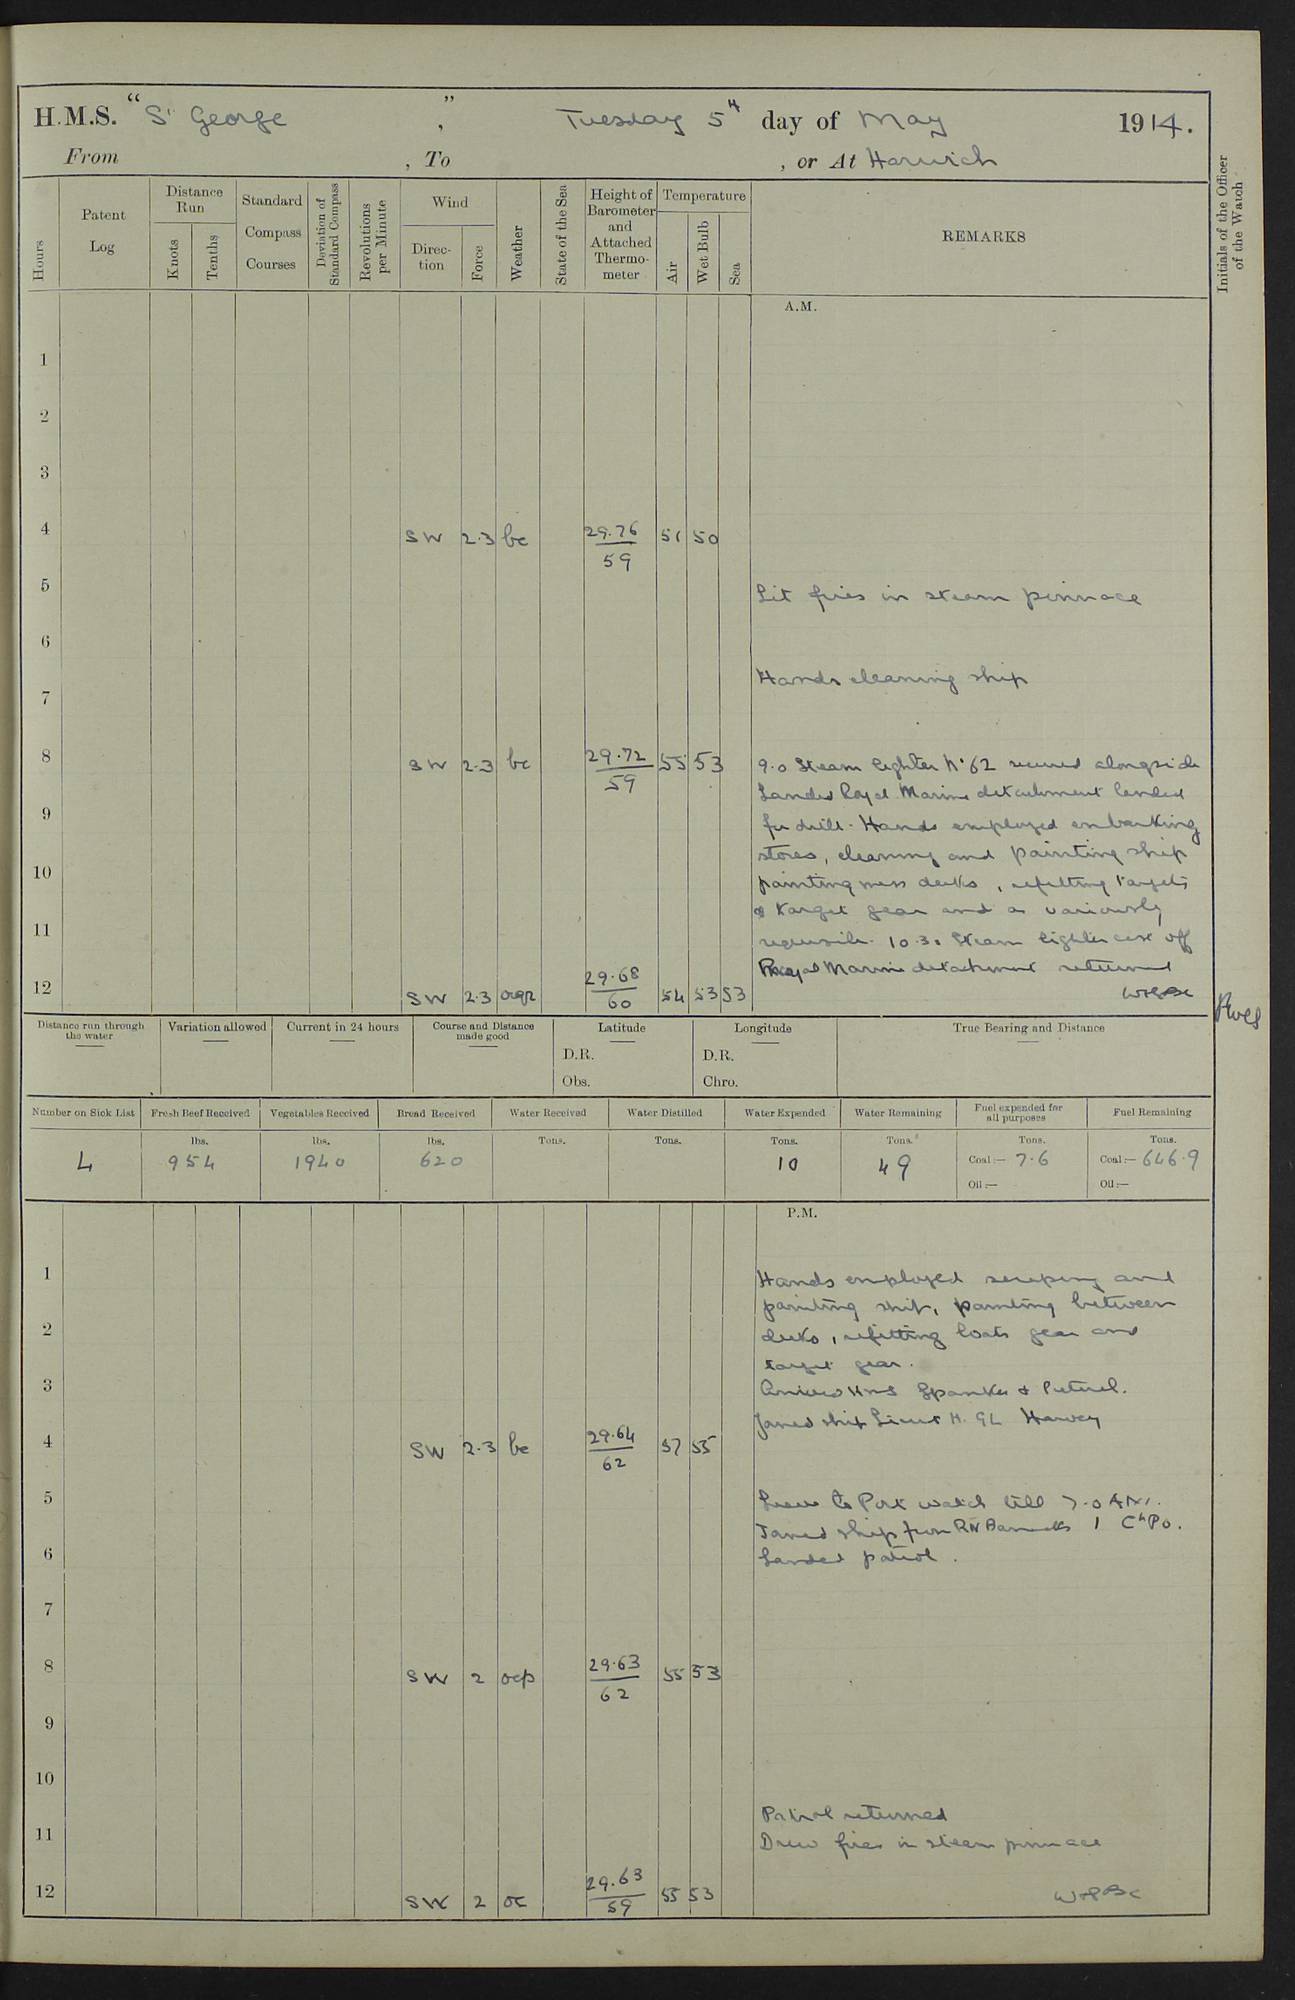 H.M.S. "St George", Tuesday 5th day of May 1914.
From , To , or At Harwich
Hours
Patent Log
Distance Run
Knots
Tenths
Standard Compass Courses
Deviation of Standard Compass
Revolutions per Minute
Wind
Direction
Force
Weather
State of the Sea
Height of Barometer and Attached Thermometer
Temperature
Air
Wet Bulb
Sea
REMARKS
Initials of the Officer of the Watch
A.M.
1
2
3
4 SW 2.3 bc 29.76/59 51 50
5 Lit fires in steam pinnace
6
Hands cleaning ship
7
8 SW 2.3 bc 29.72/59 55 53
9.0 Steam lighter No 62 secured alongside
Landed Royal Marine detachment landed
9 for drill. Hands employed embarking
stores, cleaning and painting ship
10 painting mess decks, refitting targets
& target gear and as variously
11 requisite. 10.30 Steam lighter cast off
Royal Marine detachment returned
12 SW 2.3 ogr 29.68/60 54 53 53
Distance run through the water
Variation allowed
Current in 24 hours
Course and Distance made good
Latitude
D.R.
Obs.
Longitude
D.R.
Chro.
True Bearing and Distance
Number on Sick List
Fresh Beef Received
Vegetables Received
Bread Received
Water Received
Water Distilled
Water Expended
Water Remaining
Fuel expended for all purposes
Fuel Remaining
lbs. lbs. lbs. Tons. Tons. Tons. Tons. Tons. Tons.
4 954 1940 620 10 49 Coal:— 7.6 Coal:— 646.9
Oil:— Oil:—
P.M.
1 Hands employed scraping and
painting ship, painting between
2 decks, refitting boats gear and
target gear.
3 Arrived HMS Spanker &
Joined ship Lieut H. G L Harvey
4 SW 2.3 bc 29.64/62 57 55
5 Leave to Port watch till 7.0 AM.
Joined ship from RN Barracks 1 Ch PO.
6 Landed patrol.
7
8 SW 2 ocp 29.63/62 55 53
9
10
Patrol returned
11 Drew fires in steam pinnace
12 SW 2 oc 29.63/59 55 53